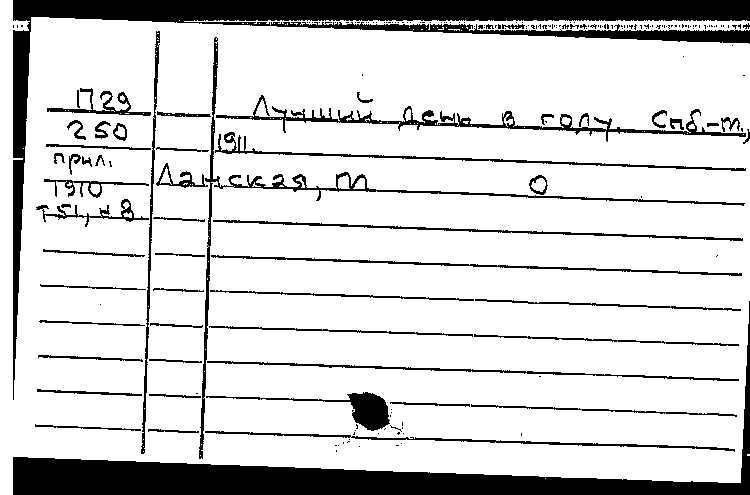 П29 Лучший день в году. Спб.-М.,
250 1911.
прил.
1910 Ланская, М О
т51, н8.